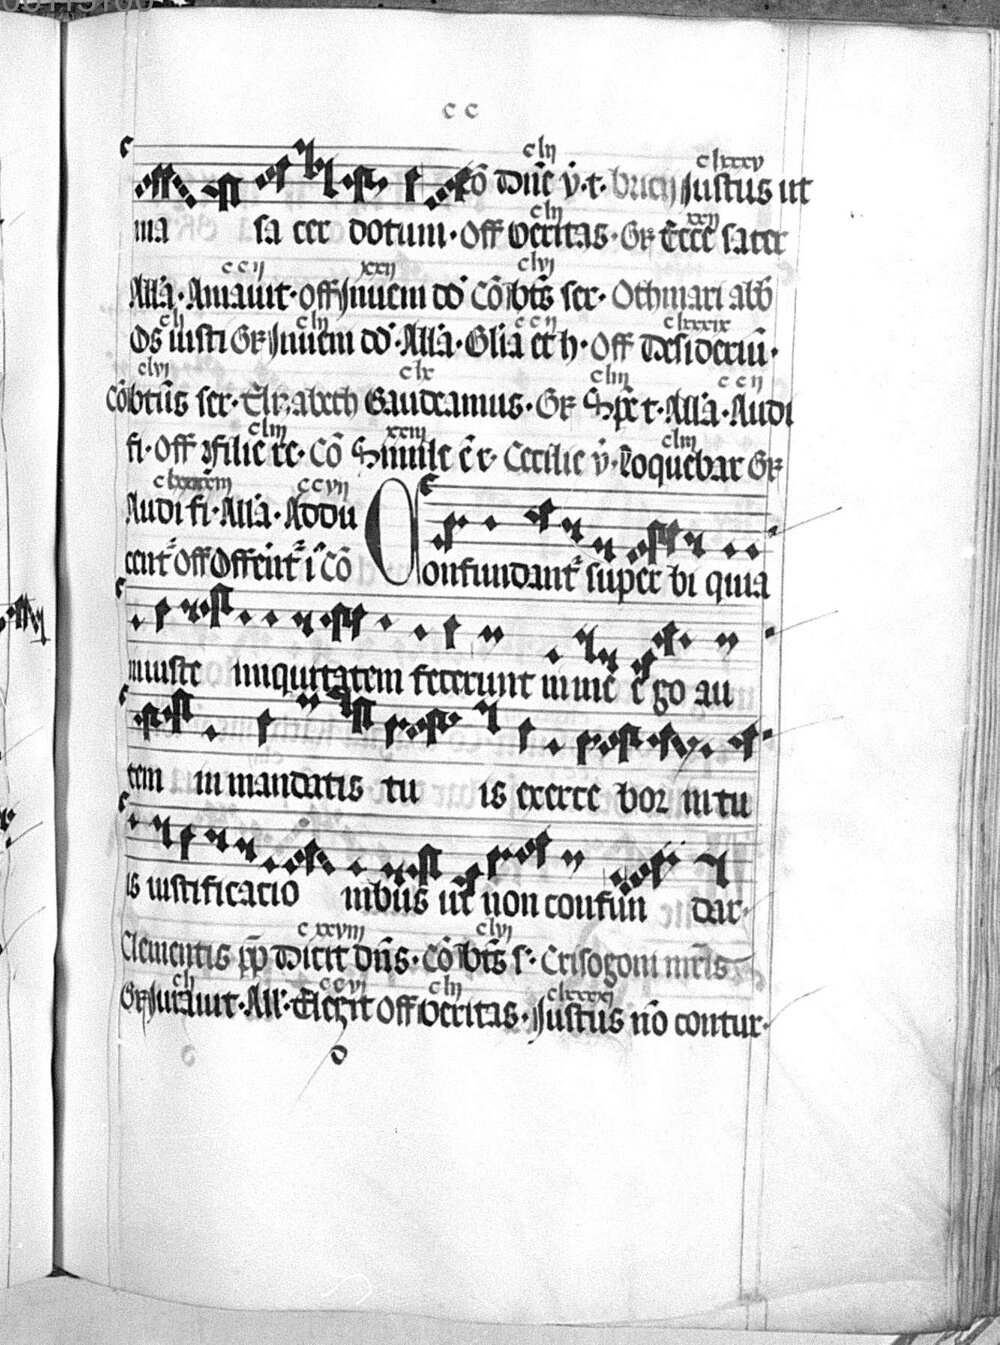 c c
clij clxxxv
Cō Dn̄e v̇·t· bricij Justus ut
clij xxij
ma sa cer dotum· Off veritas· Gr̄ Ecce sacer
ccij xxij clvj
All̄a· Amavit· Off Inueni dd̄ Cō btūs ser· Othmari abb̄
clj clij ccij clxxxix
Os iusti Gr̄ Inueni dd̄· All̄a· Glīa et h· Off Desideriū·
clvj clx cliij ccij
Cō btūs ser· Elizabeth Gaudeamus· Gr̄ Spē t· All̄a· Audi
cliij xxiij cliij
fi· Off filie re· Cō Simile ē r· Cecilie v̇· Loquebar Gr̄
ccvij
Audi fi· All̄a· Addu
cent᷑ Off Offerūt᷑ i᷑ Cō
Confundant᷑ super bi quia
iniuste iniquitatem fecerunt in me ego au
tem in mandatis tu is exerce bor in tu
is iustificatio nibus ut non confun dar·
cxxviij clvj
Clementis pp̄ Dicit dn̄s· Cō btūs s· Crisogoni mr̄is
clj ccvj clij clxxxxj
Gr̄ Jurauit· All̄· Elegit Off veritas· Justus nō contur·